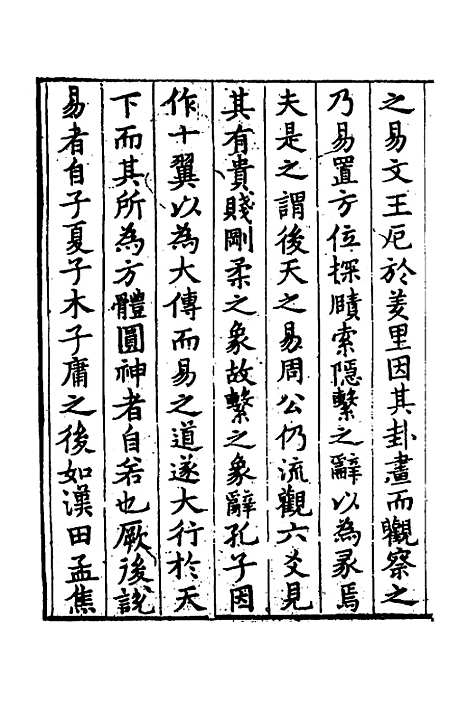 之易文王厄於羑里因其卦畫而觀察之
乃易置方位探賾索隱繫之辭以為彖焉
夫是之謂後天之易周公仍流觀六爻見
其有貴賤剛柔之象故繫之象辭孔子因
作十翼以為大傳而易之道遂大行於天
下而其所為方體圓神者自若也厥後說
易者自子夏子木子庸之後如漢田孟焦